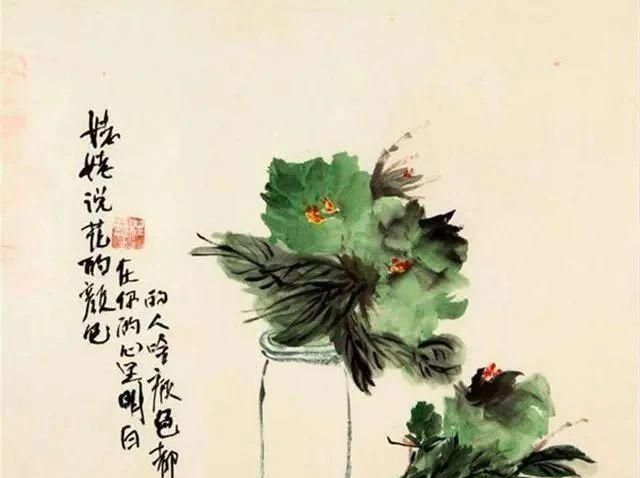 姥姥说花的颜色
在你的心里明白
的人啥颜色都